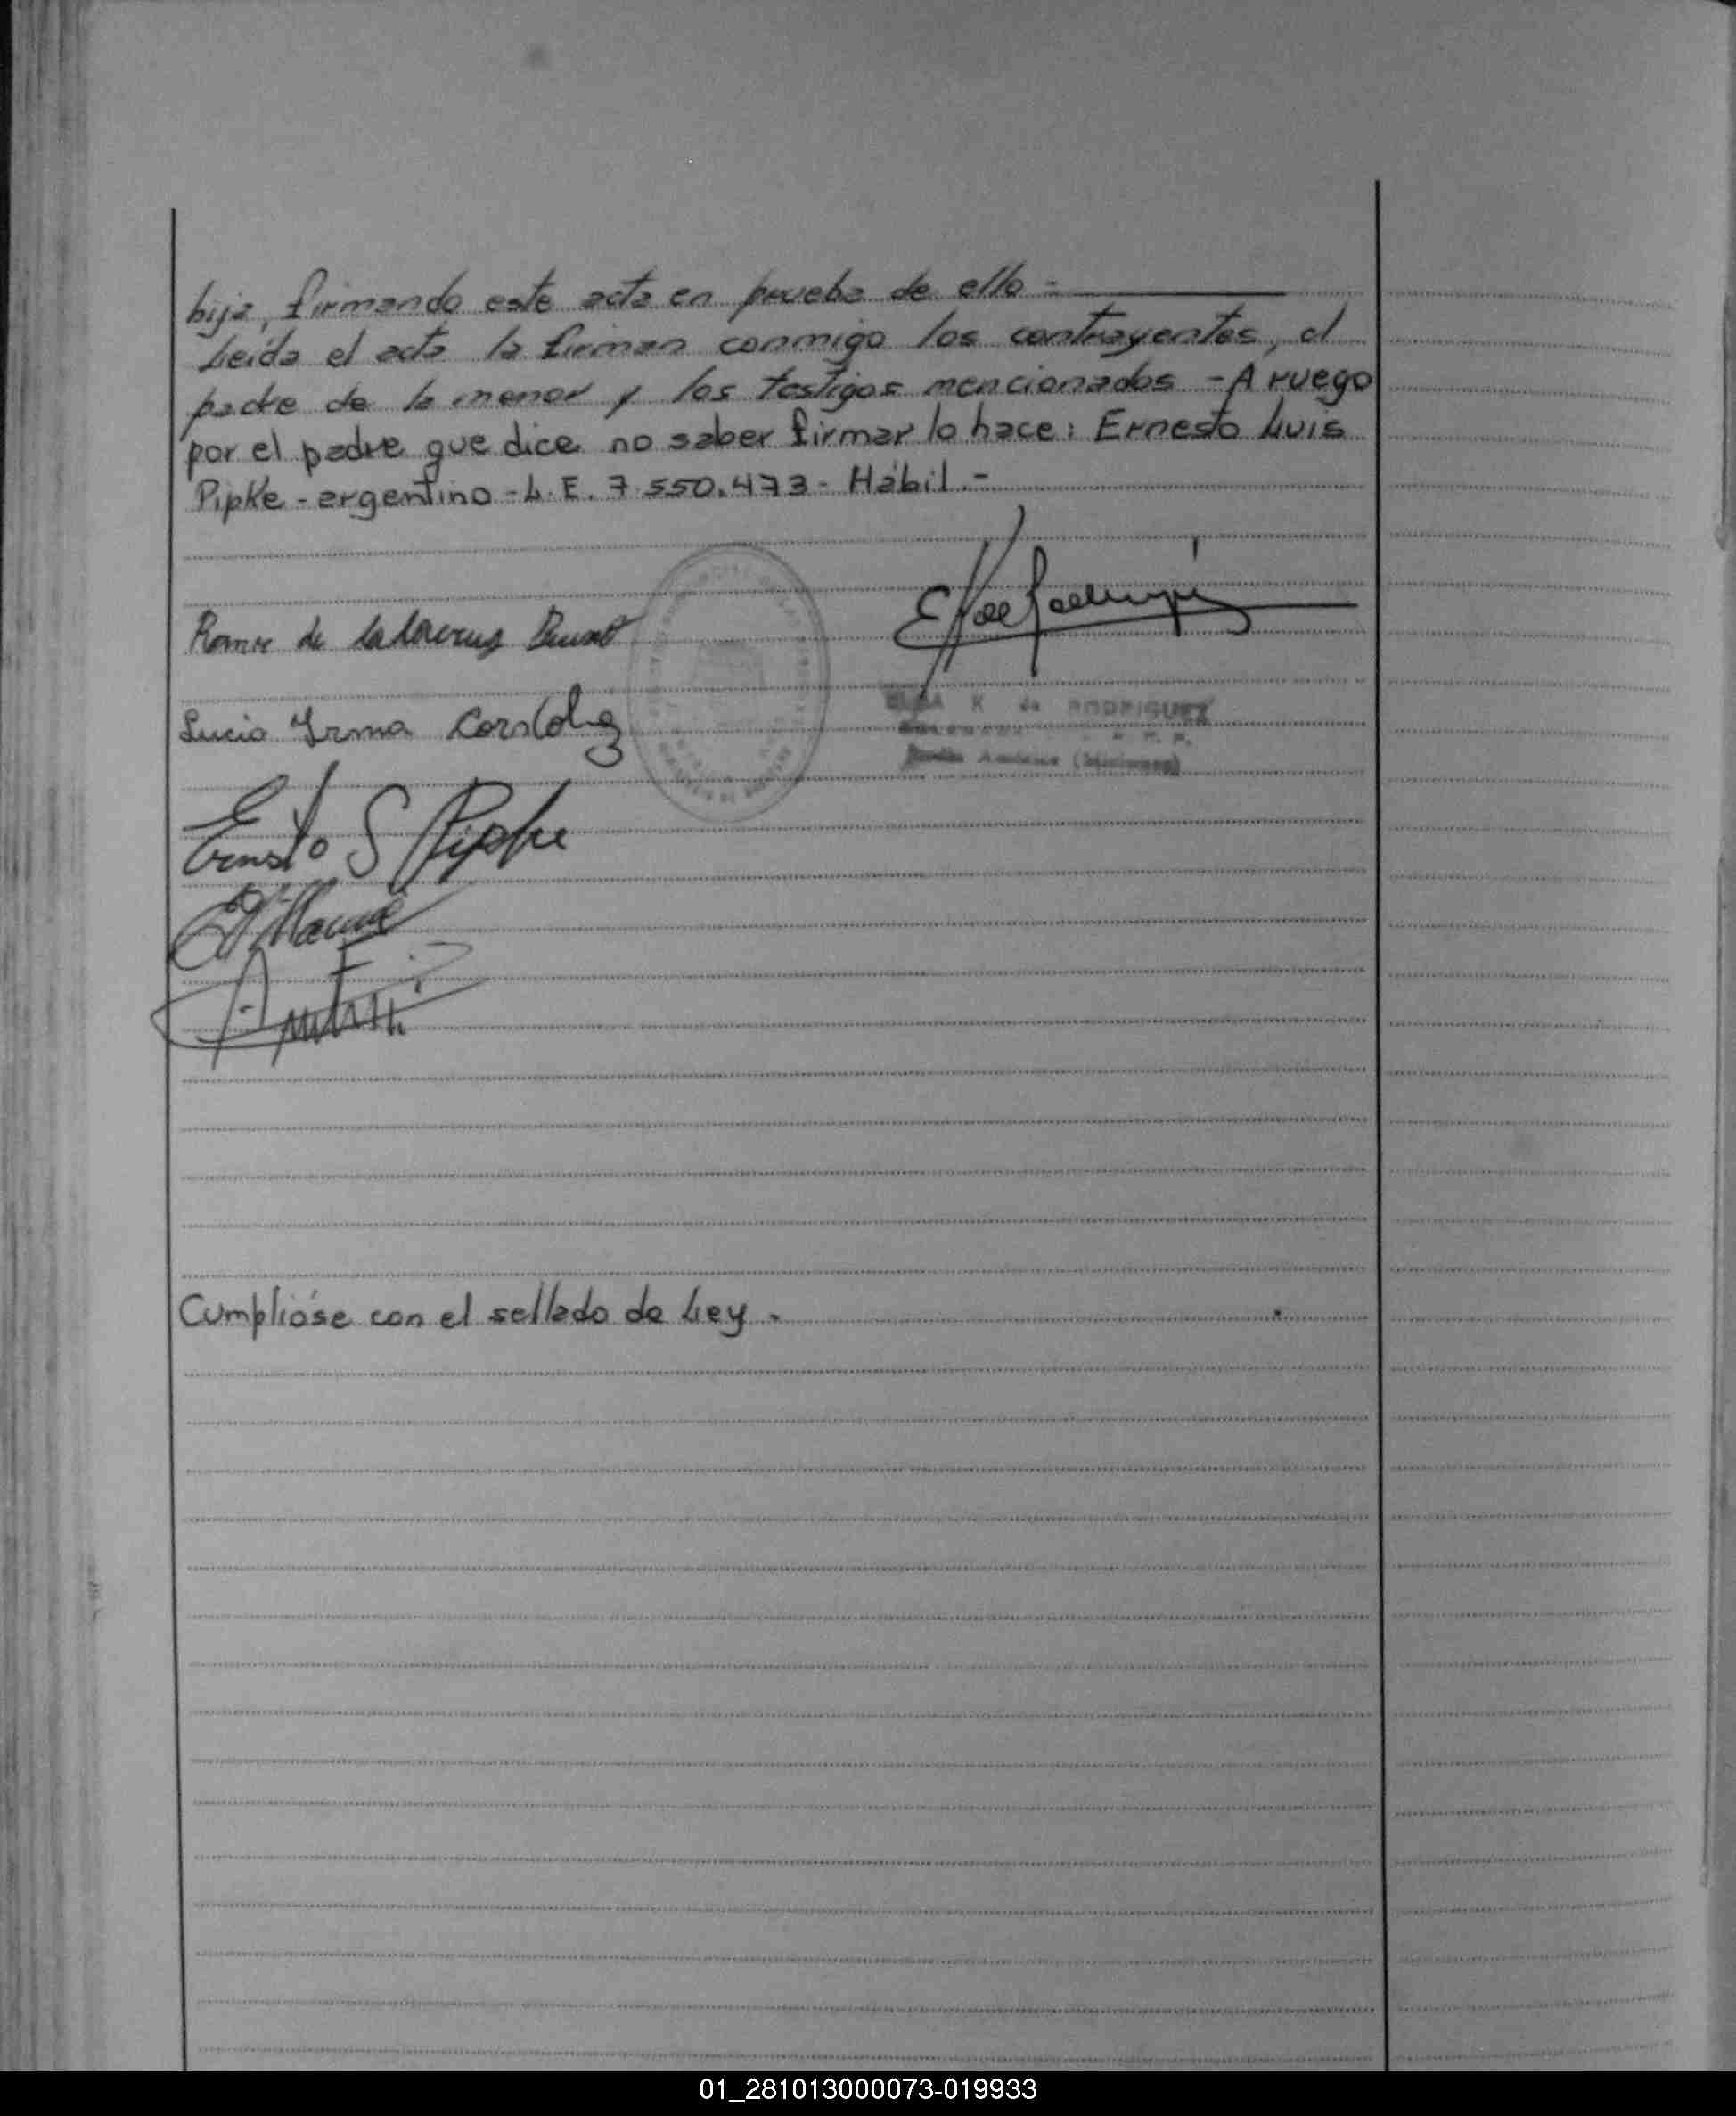 hija, firmando este acta en prueba de ello -
Leída el acta la firman conmigo los contrayentes, el
padre de la menor y los testigos mencionados - A ruego
por el padre que dice no saber firmar lo hace: Ernesto Luis
Pipke - argentino - L. E. 7.550.473 - Hábil. -
de la
Lucia Irma
K de RODRIGUEZ
Ernesto Pipke
Cumplióse con el sellado de Ley -
01_281013000073-019933